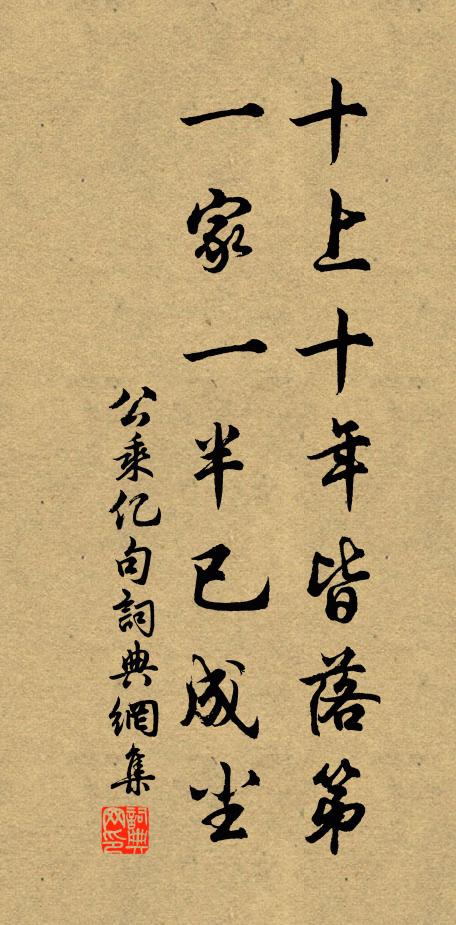 十上十年皆落第
一家一半已成尘
公乘亿句詞典網集
詞典網印